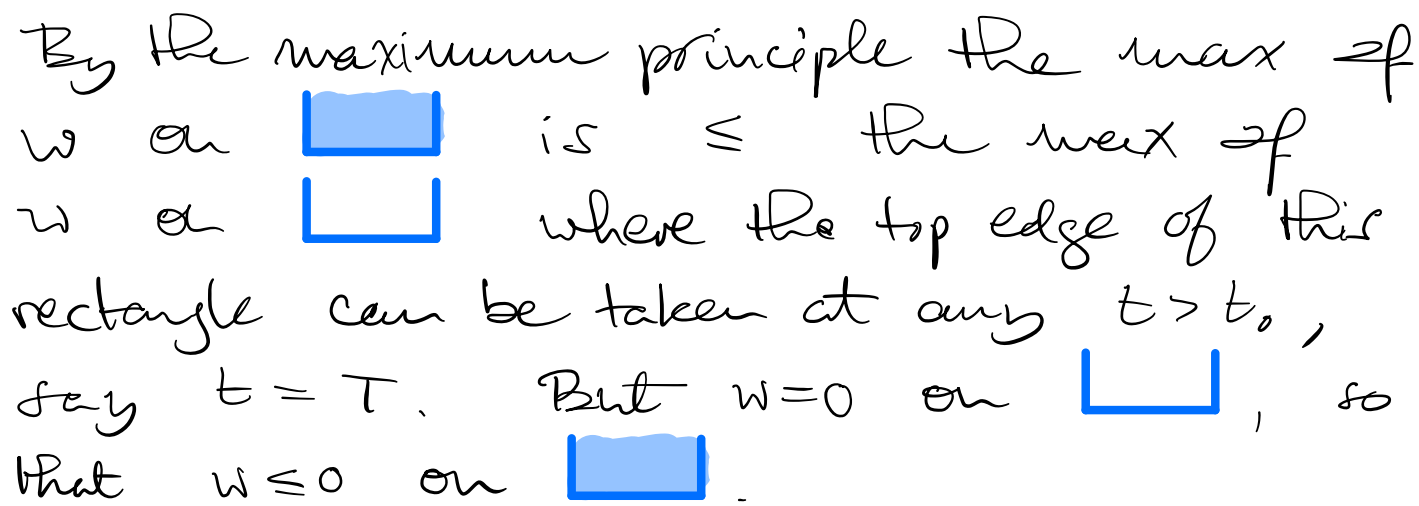 By the maximum principle the max of
w on is ≤ the max of
w on where the top edge of this
rectangle can be taken at any t > t₀,
say t = T. But w=0 on , so
that w ≤ 0 on .